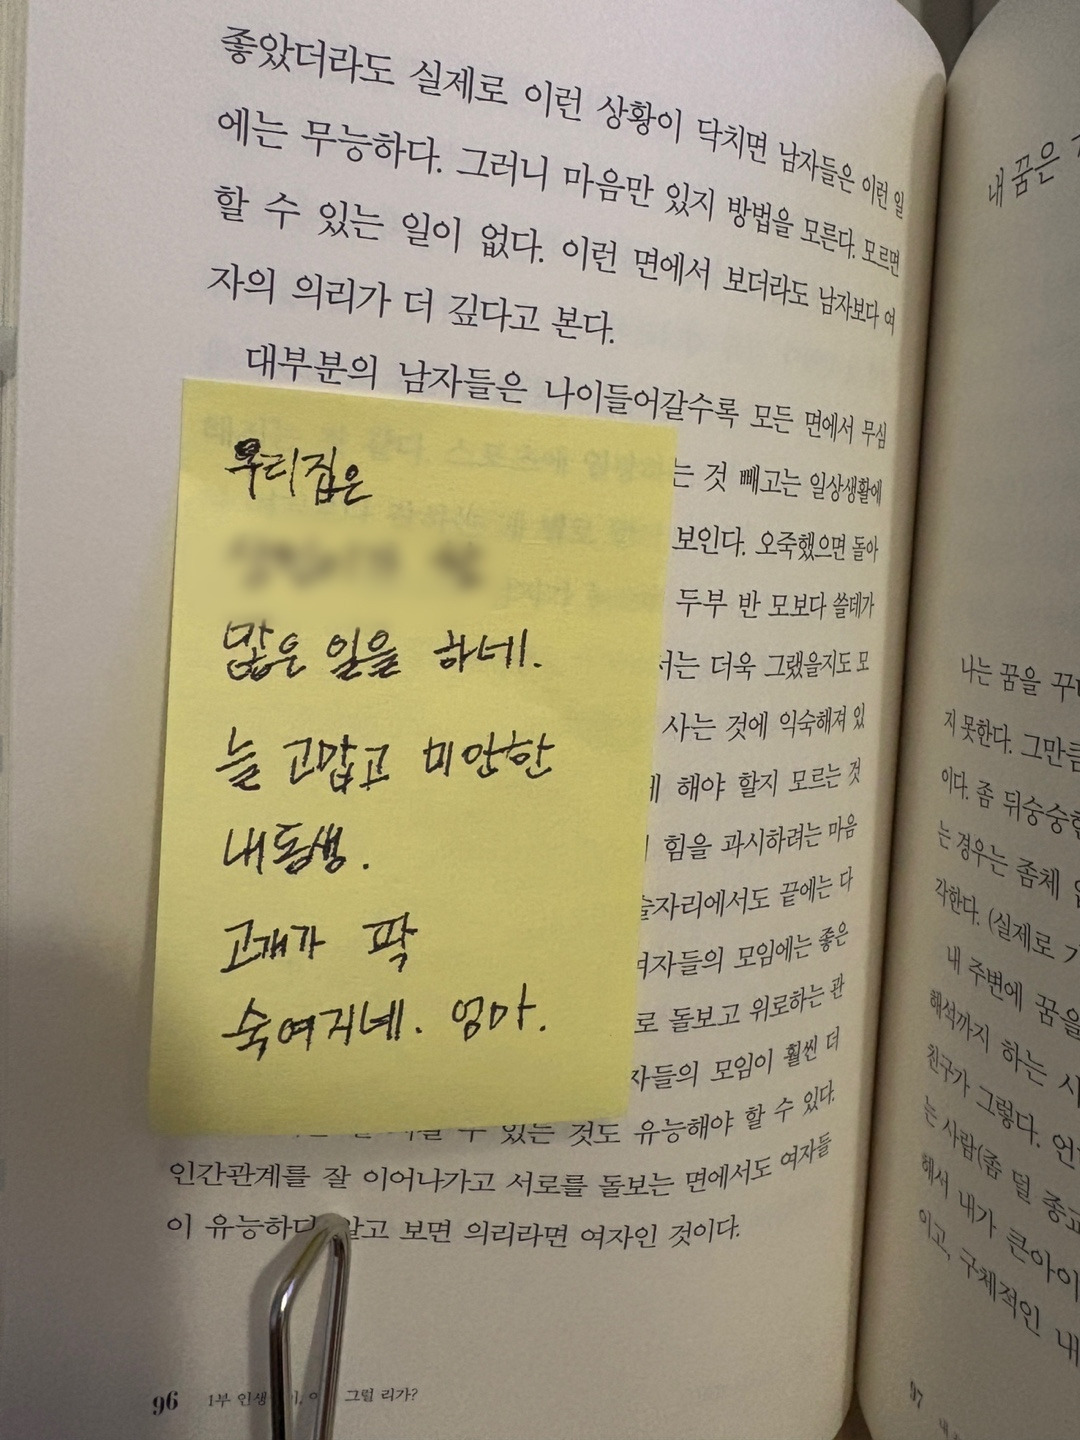 좋았더라도 실제로 이런 상황이 닥치면 남자들은 이런 일
에는 무능하다. 그러니 마음만 있지 방법을 모른다. 모르면
할 수 있는 일이 없다. 이런 면에서 보더라도 남자보다 여
자의 의리가 더 깊다고 본다.
대부분의 남자들은 나이들어갈수록 모든 면에서 무심
는 것 빼고는 일상생활에
보인다. 오죽했으면 돌아
두부 반 모보다 쓸데가
서는 더욱 그랬을지도 모
사는 것에 익숙해져 있
해야 할지 모르는 것
힘을 과시하려는 마음
술자리에서도 끝에는 다
여자들의 모임에는 좋은
로 돌보고 위로하는 관
자들의 모임이 훨씬 더
수 있는 것도 유능해야 할 수 있다.
인간관계를 잘 이어나가고 서로를 돌보는 면에서도 여자들
이 유능하다. 알고 보면 의리라면 여자인 것이다.
우리집은
많은 일을 하네.
늘 고맙고 미안한
내동생.
고개가 팍
숙여지네. 엄마.
96 1부 그럴 리가?
내 꿈은
나는 꿈을
지 못한다. 그만큼
이다. 좀 뒤숭숭한
는 경우는 좀체
각한다. (실제로
내 주변에 꿈을
해석까지 하는
친구가 그렇다.
는 사람(좀 덜
해서 내가 큰아이
이고, 구체적인
97